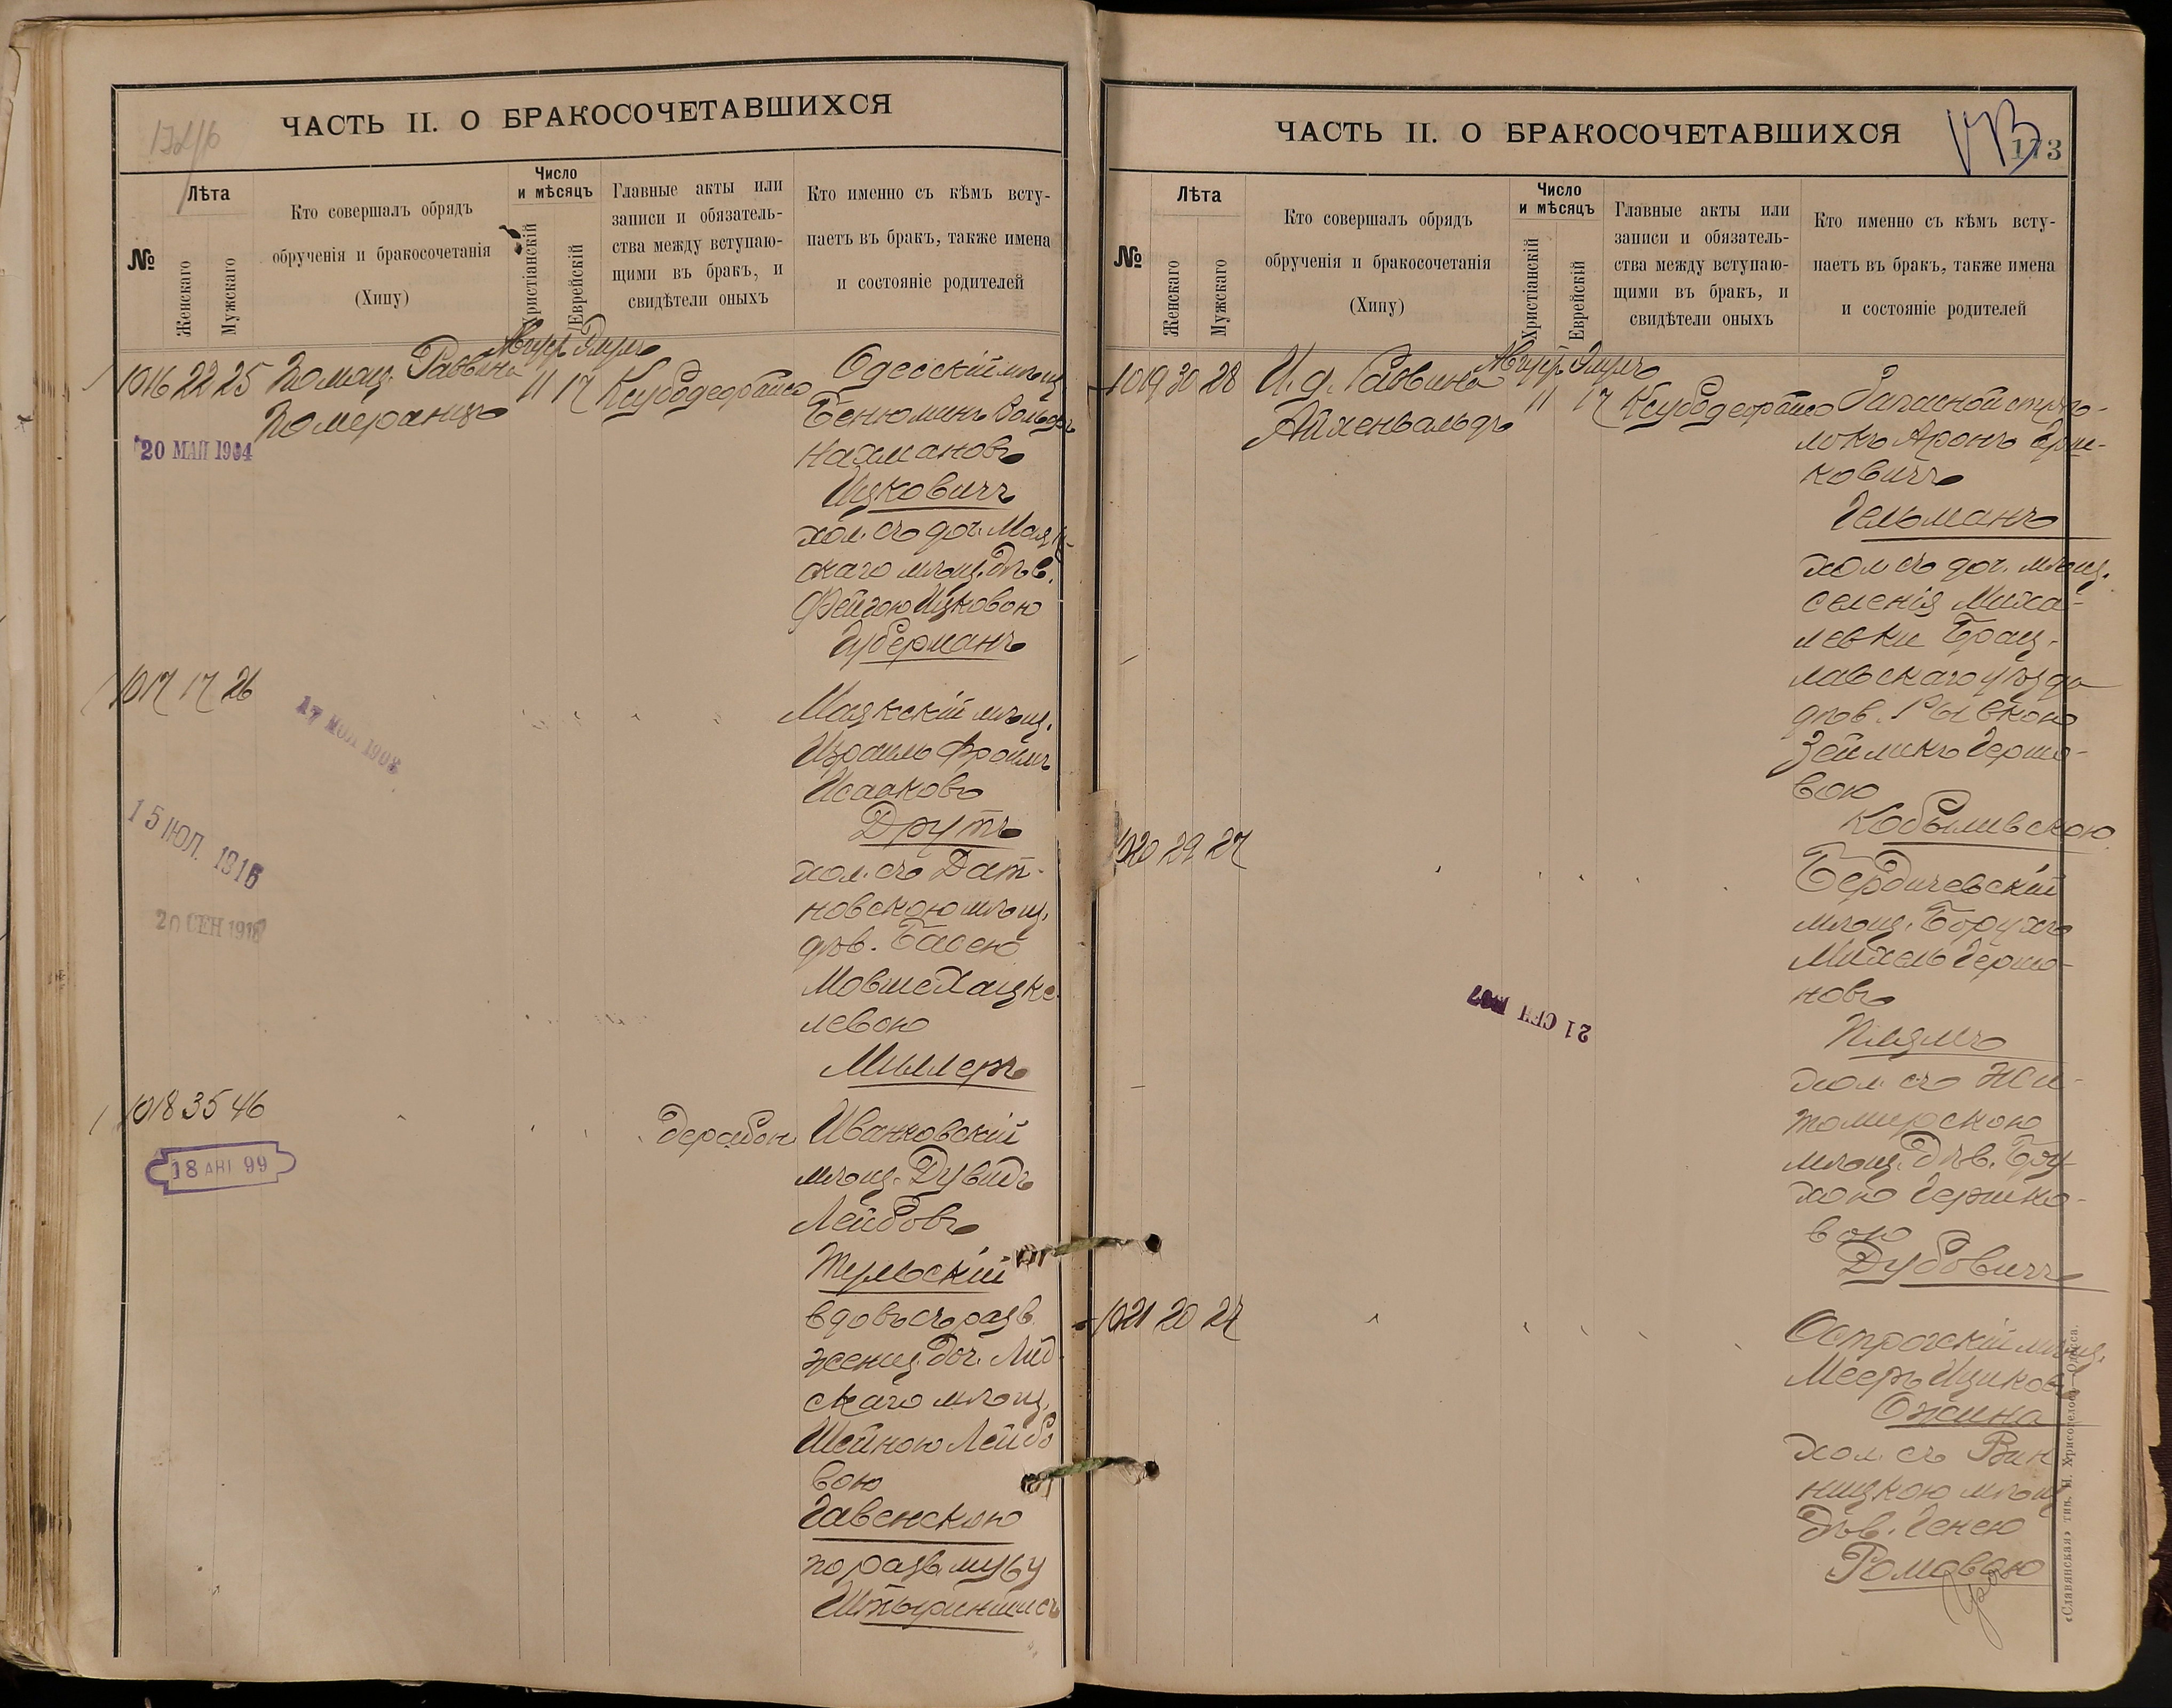 ЧАСТЬ II. О БРАКОСОЧЕТАВШИХСЯ
№
Лѣта
Женскаго
Мужскаго
Кто совершалъ обрядъ
обрученія и бракосочетанія
(Хипу)
Число
и мѣсяцъ
Христіанскій
Еврейскій
Главные акты или
записи и обязатель-
ства между вступаю-
щими въ бракъ, и
свидѣтели оныхъ
Кто именно съ кѣмъ всту-
паетъ въ бракъ, также имена
и состояніе родителей
1016 22 25
Помощ. Раввина
Померанцъ
11 17
20 МАЙ 1904
Одесскій мѣщ.
Бенюминъ Вольфъ
Нахмановъ
Ицковичъ
хол. съ доч. Маяк-
скаго мѣщ. дѣв.
Фейгою Ицковою
Губерманъ
1017 17 26
15 ІЮЛ. 1915
20 СЕН 1918
Маякскій мѣщ.
Израиль Фроимъ
Исааковъ
Друтъ
хол. съ Дат-
новскою мѣщ.
дѣв. Басею
Мовше Хацке-
левою
Миллеръ
1018 35 46
18 АВГ 99
Иванковскій
мѣщ. Дувидъ
Лейбовъ
Тульскій
вдовъ съ разв.
женщ. доч. Лид
скаго мѣщ.
Шейною Лейбо
вою
Гавенскою
по разв. мужу
ЧАСТЬ II. О БРАКОСОЧЕТАВШИХСЯ
173
№
Лѣта
Женскаго
Мужскаго
Кто совершалъ обрядъ
обрученія и бракосочетанія
(Хипу)
Число
и мѣсяцъ
Христіанскій
Еврейскій
Главные акты или
записи и обязатель-
ства между вступаю-
щими въ бракъ, и
свидѣтели оныхъ
Кто именно съ кѣмъ всту-
паетъ въ бракъ, также имена
и состояніе родителей
1019 30 28
И. д. Раввина
Айхенвальдъ
11 17
Запасной стрѣ-
локъ Аронъ Ерш-
ковичъ
Гельманъ
хол. съ доч. мѣщ.
селенія Миха-
левки Брац-
лавскаго уѣзда
дѣв. Рывкою
Зейликъ Гершо-
вою
Кобылевскою
1020 29 27
21 СЕН 1907
Бердичевскій
мѣщ. Борухъ
Михель Гершо-
новъ
Плямъ
хол. съ Жи-
томирскою
мѣщ. дѣв. Бру-
хою Гершко-
вою
Дубовичъ
1021 20 27
Острогскій мѣщ.
Мееръ Ицковъ
Ожина
хол. съ Вин
ницкою мѣщ
дѣв. Генею
«Славянская» тип. Н. Хрисогелосъ—Одесса.